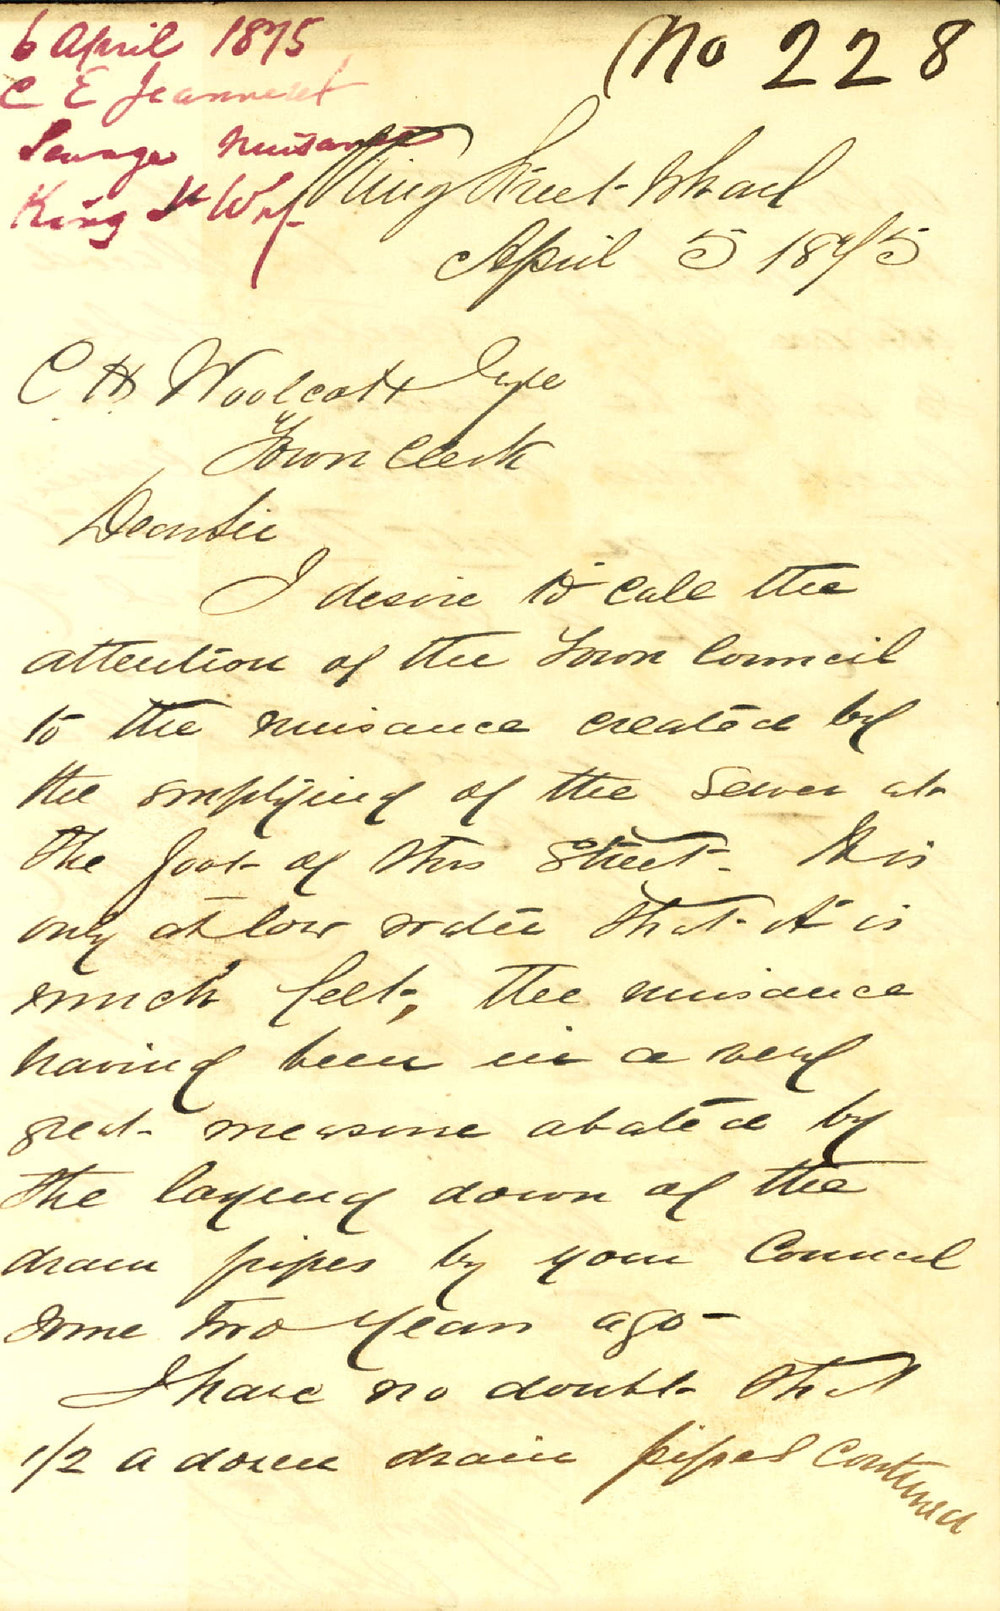 6 April 1875
C E Jeanneret
Sewage nuisance
King St Whf
No 228
King Street Wharf
April 5 1875
C H Woolcott Esqe
Town Clerk
Dear Sir
I desire to call the
attention of the Town Council
to the nuisance created by
the emptying of the sewer at
the foot of this Street. It is
only at low water that it is
much felt, the nuisance
having been in a very
great measure abated by
the laying down of the
drain pipes by your Council
some two years ago -
I have no doubt that
1/2 a dozen drain pipes continued